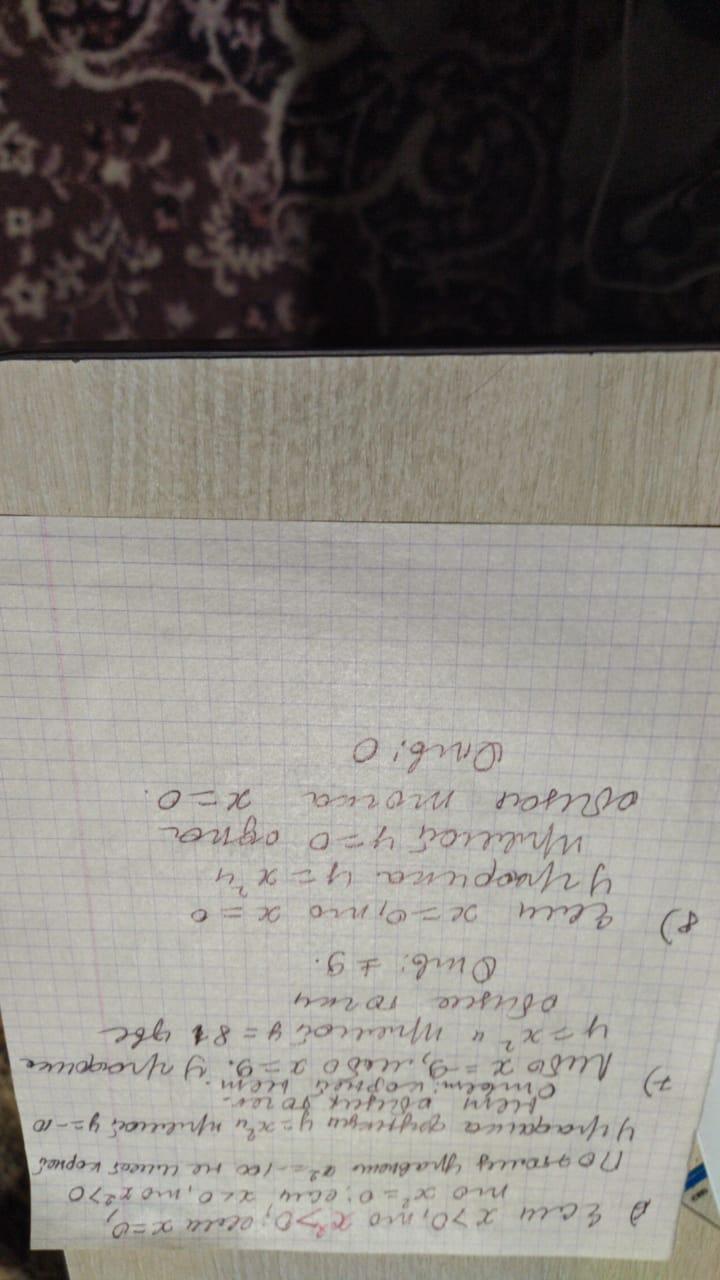 Если x>0, то x²>0; если x=0,
то x²=0; если x<0, то x²>0
Поэтому уравнение x²=-100 не имеет корней
У графика функции y=x² и прямой y=-10
нет общих точек.
Ответ: корней нет.
7) Либо x=-9, либо x=9. У графика
y=x² и прямой y=81 две
общие точки
Отв: ±9.
8) Если x=0, то x=0
У графика y=x² и
прямой y=0 одна
общая точка x=0.
Отв: 0